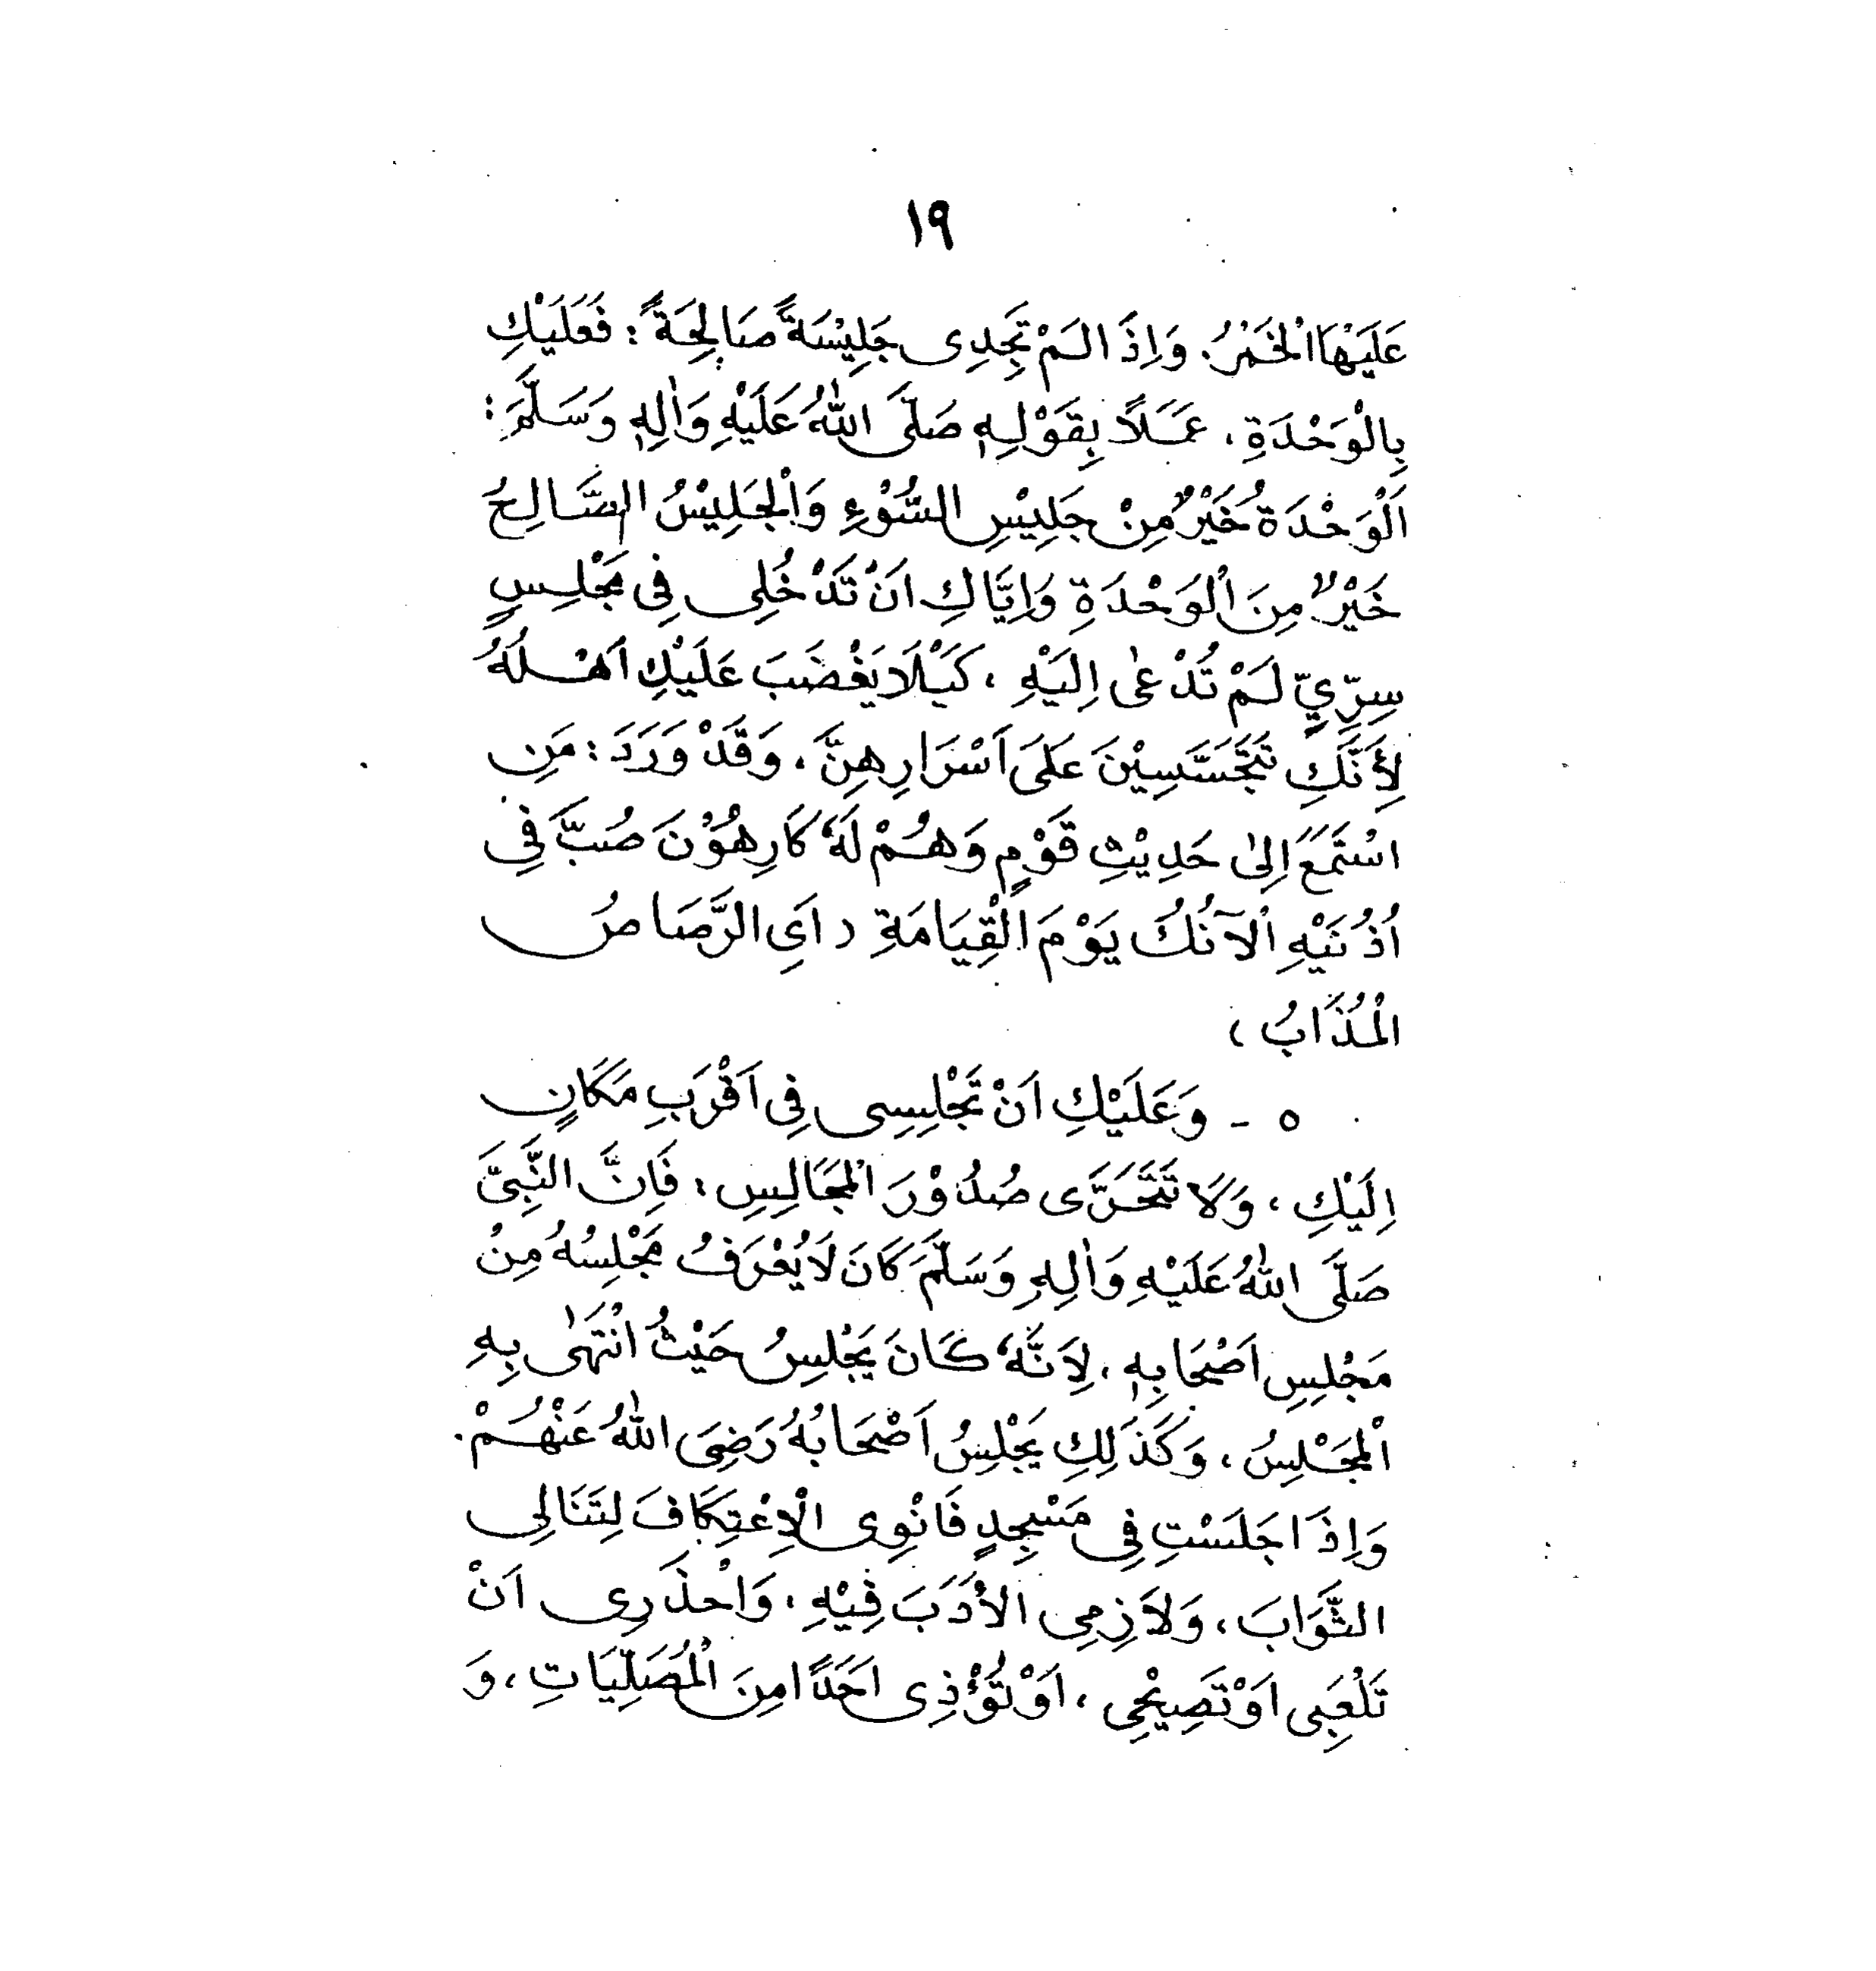 ١٩
عَلَيْهَا الْخَمْرُ. وَاِذَا لَمْ تَجِدِى جَلِيْسَةً صَالِحَةً: فَعَلَيْكِ
بِالْوَحْدَةِ، عَمَلًا بِقَوْلِهِ صَلَّى اللّٰهُ عَلَيْهِ وَاٰلِهِ وَسَلَّمَ:
اَلْوَحْدَةُ خَيْرٌ مِنْ جَلِيْسِ السُّوْءِ وَالْجَلِيْسُ الصَّالِحُ
خَيْرٌ مِنَ الْوَحْدَةِ وَاِيَّاكِ اَنْ تَدْخُلِى فِى مَجْلِسٍ
سِرِّيٍّ لَمْ تُدْعٰى اِلَيْهِ، كَيْلَا يَغْضَبَ عَلَيْكِ اَهْلُهُ
لِأَنَّكِ تَتَجَسَّسِيْنَ عَلَى اَسْرَارِهِنَّ، وَقَدْ وَرَدَ: مَنِ
اسْتَمَعَ اِلىٰ حَدِيْثِ قَوْمٍ وَهُمْ لَهُ كَارِهُوْنَ صُبَّ فِي
اُذُنَيْهِ الْآنُكُ يَوْمَ الْقِيَامَةِ (اَيِ الرَّصَاصُ
الْمُذَابُ)
٥ - وَعَلَيْكِ اَنْ تَجْلِسِى فِى اَقْرَبِ مَكَانٍ
اِلَيْكِ، وَلَا تَتَحَرَّى صُدُوْرَ الْمَجَالِسِ: فَاِنَّ النَّبِىَّ
صَلَّى اللّٰهُ عَلَيْهِ وَاٰلِهِ وَسَلَّمَ كَانَ لَا يُعْرَفُ مَجْلِسُهُ مِنْ
مَجْلِسِ اَصْحَابِهِ، لِاَنَّهُ كَانَ يَجْلِسُ حَيْثُ انْتَهٰى بِهِ
الْمَجْلِسُ، وَكَذَلِكِ يَجْلِسُ اَصْحَابُهُ رَضِىَ اللّٰهُ عَنْهُمْ.
وَاِذَا جَلَسْتِ فِى مَسْجِدٍ فَانْوِى الْاِعْتِكَافَ لِتَنَالِى
الثَّوَابَ، وَلَازِمِى الْأَدَبَ فِيْهِ، وَاحْذَرِى اَنْ
تَلْعَبِى اَوْ تَصِيْحِى، اَوْ تُؤْذِى اَحَدًا مِنَ الْمُصَلِّيَاتِ، وَ